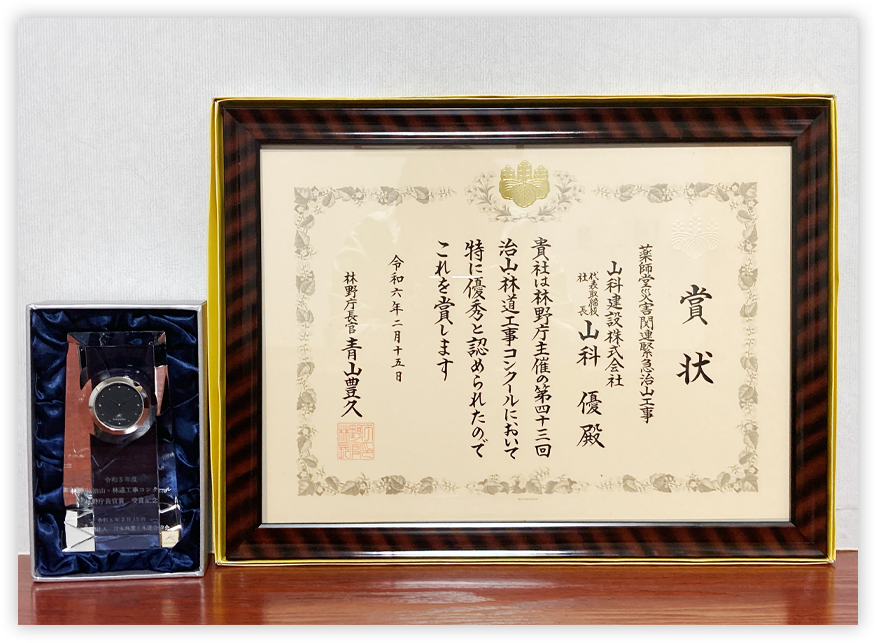 賞状
薬師堂災害関連緊急治山工事
山科建設株式会社
代表取締役
社長
山科 優 殿
貴社は林野庁主催の第四十三回
治山・林道工事コンクールにおいて
特に優秀と認められたので
これを賞します
令和六年二月十五日
林野庁長官 青山豊久
令和5年度
治山・林道工事コンクール
林野庁長官賞 受賞記念